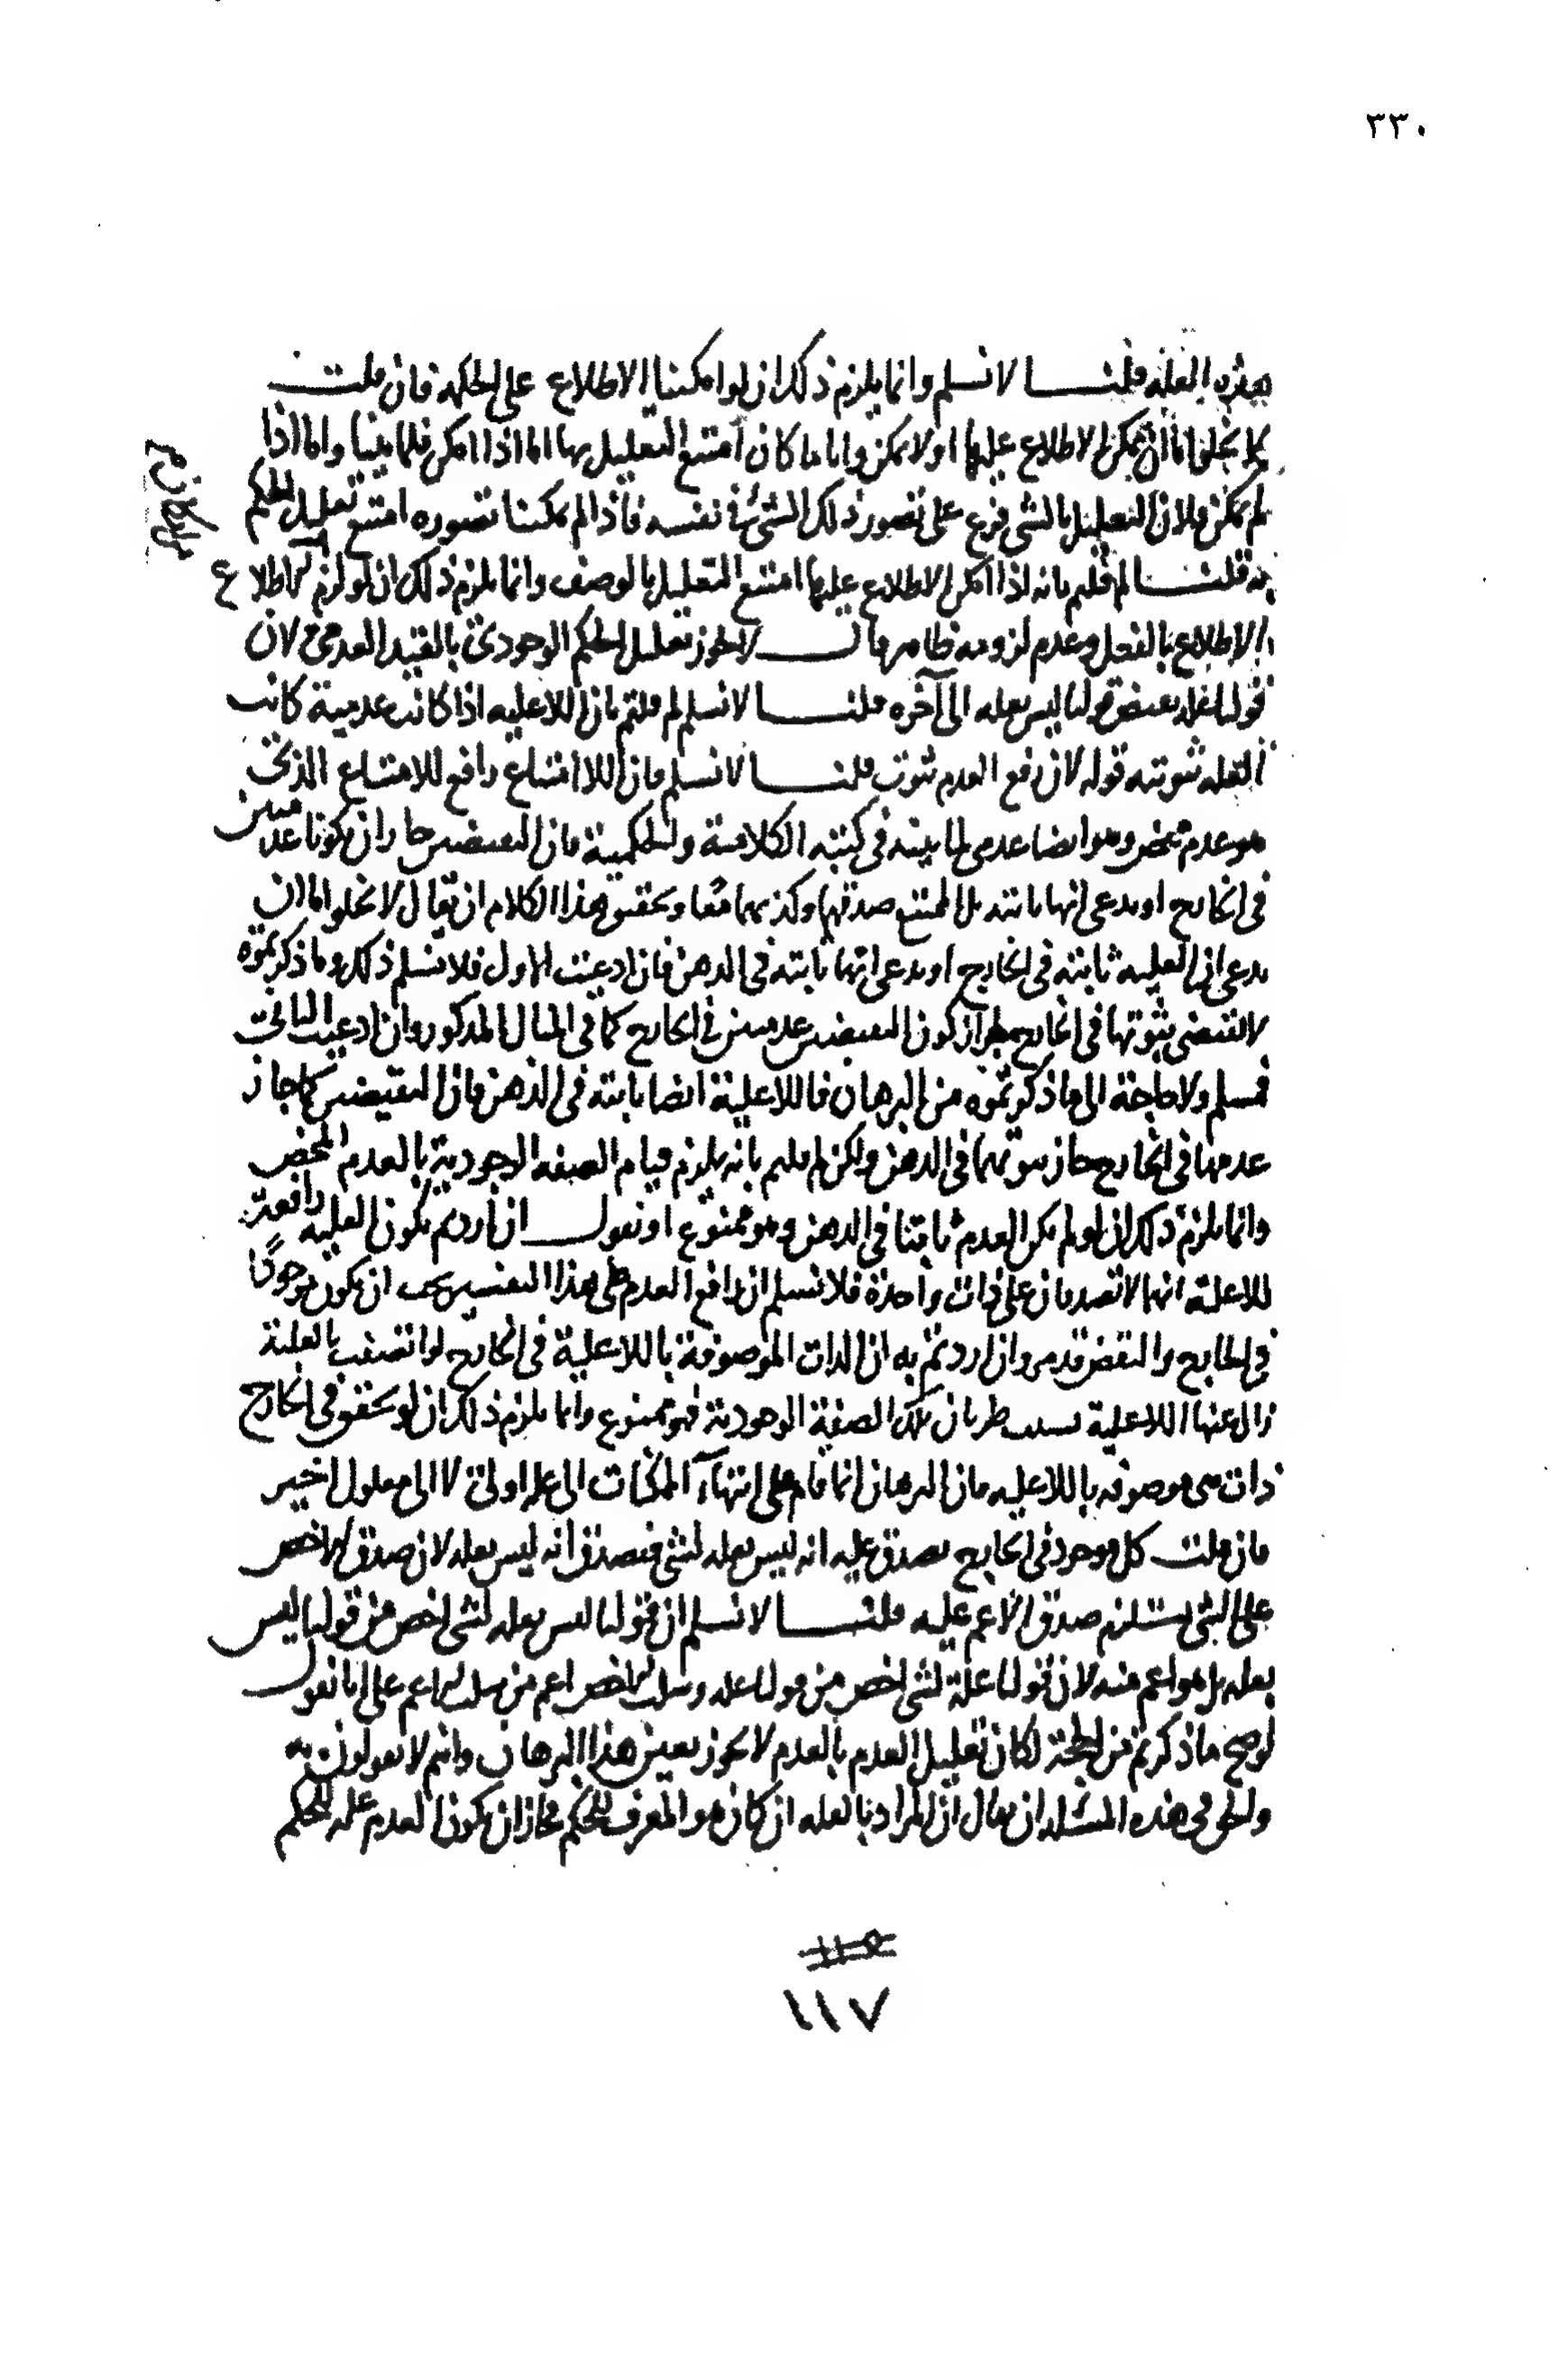 ٣٣٠
بهذه العلة قلنا لا نسلم وانما يلزم ذلك ان لو امكننا الاطلاع على الحكمة فان قلت
لم يخل اما ان يمكن الاطلاع عليها او لا يمكن واياما كان امتنع التعليل بها اما اذا امكن فلما بينا واما اذا
لم يمكن فلان التعليل بالشئ فرع على تصور ذلك الشئ في نفسه فاذا لم يمكننا تصوره امتنع تعليل الحكم
به قلنا لم قلتم بانه اذا امكن الاطلاع عليها امتنع التعليل بالوصف وانما يلزم ذلك ان لو لزم اطلاع
الاطلاع بالفعل وعدم لزومه ظاهر قال لا يجوز تعليل الحكم الوجودي بالقيد العدمي لان
قولنا علة نقيض قولنا ليس بعلة الى آخره قلنا لا نسلم لم قلتم بان اللاعلية اذا كانت عدمية كانت
العلة ثبوتية قوله لان رفع العدم ثبوت قلنا لا نسلم فان اللا امتناع رافع للامتناع الذي
هو عدم محض وهو ايضا عدمي لما بينه في كتبه الكلامية والحكمية فان النقيضين جاز ان يكونا عدميين
في الخارج او يدعى انها ثابتة بل الممتنع صدقهما وكذبهما معا وتحقيق هذا الكلام ان يقال لا يخلو اما ان
يدعى ان العلية ثابتة في الخارج او يدعى انها ثابتة في الذهن فان ادعيت الاول فلا نسلم ذلك وما ذكرتموه
لا يقتضي ثبوتها في الخارج لجواز كون النقيضين عدميين في الخارج كما في المثال المذكور وان ادعيت الثاني
فمسلم ولا حاجة الى ما ذكرتموه من البرهان فاللاعلية ايضا ثابتة في الذهن فان النقيضين كما جاز
عدمهما في الخارج جاز ثبوتهما في الذهن ولكن لم قلتم بانه يلزم قيام الصفة الوجودية بالعدم المحض
وانما يلزم ذلك ان لو لم يكن العدم ثابتا في الذهن وهو ممنوع او نقول ان اردتم بكون العلية رافعة
للاعلية انهما لا تصدقان على ذات واحدة فلا نسلم ان رافع العدم على هذا التفسير يجب ان يكون موجودا
في الخارج والنقض قد مر وان اردتم به ان الذات الموصوفة باللاعلية في الخارج لو اتصفت بالعلية
زال عنها اللاعلية بسبب طريان تلك الصفة الوجودية فهو ممنوع وانما يلزم ذلك ان لو تحقق في الخارج
ذات هي موصوفة باللاعلية فان البرهان انما قام على انتهاء الممكنات الى علة اولى لا الى معلول اخير
فان قلت كل موجود في الخارج يصدق عليه انه ليس بعلة لشئ فيصدق انه ليس بعلة لان صدق الاخص
على الشئ يستلزم صدق الاعم عليه قلنا لا نسلم ان قولنا ليس بعلة لشئ اخص من قولنا ليس
بعلة بل هو اعم منه لان قولنا علة لشئ اخص من قولنا علة وسلب الاخص اعم من سلب الاعم على انا نقول
لو صح ما ذكرتم من الحجة لكان تعليل العدم بالعدم لا يجوز بعين هذا البرهان وانتم لا تقولون به
والحق في هذه المسئلة ان يقال ان المراد بالعلة ان كان هو المعرف للحكم فجاز ان يكون العدم علة للحكم
١١٧